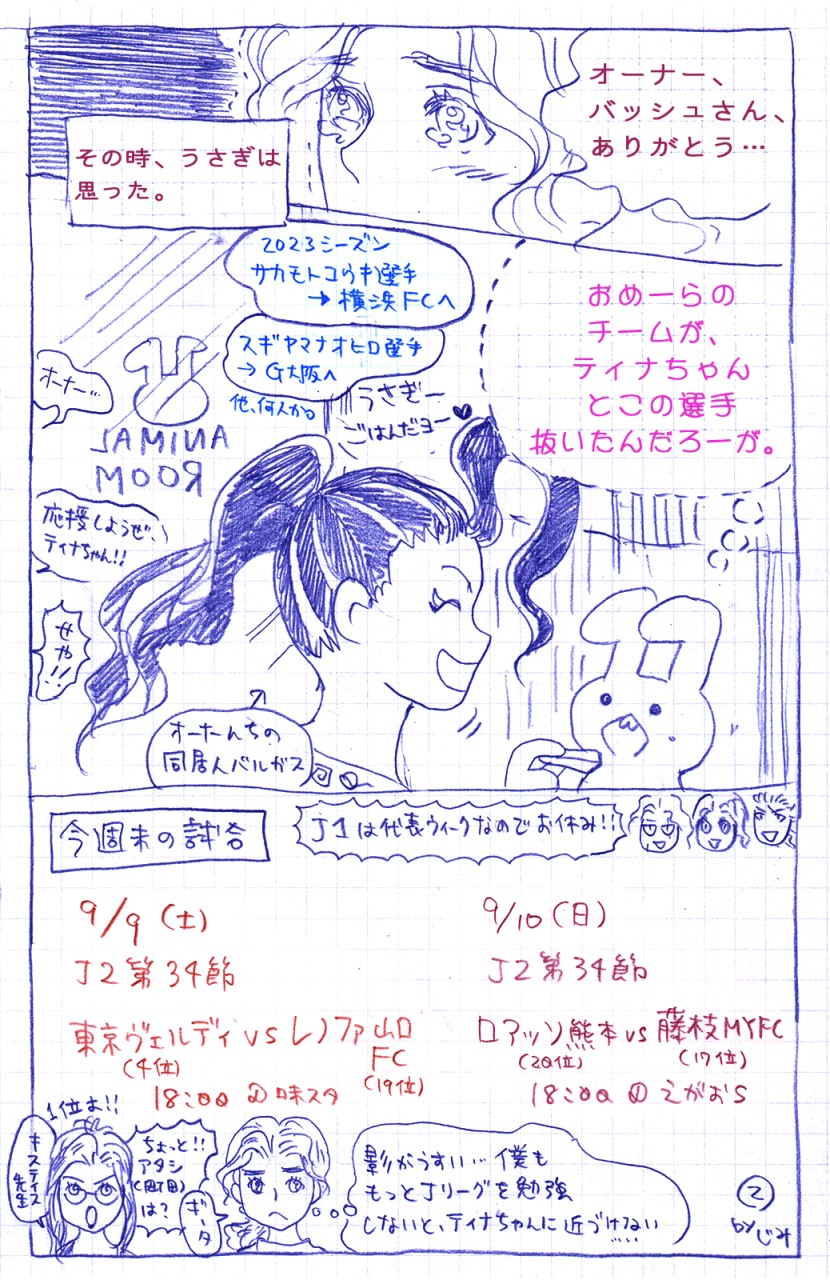 オーナー、
バッシュさん、
ありがとう…
その時、うさぎは
思った。
2023シーズン
サカモトコウキ選手
→横浜FCへ
スギヤマナオヒロ選手
→G大阪へ
他、何人かる
おめーらの
チームが、
ティナちゃん
とこの選手
抜いたんだろーが。
オーナー…
うさぎー
ごはんだヨー
ANIMAL
ROOM
応援しようぜ、
ティナちゃん!!
せや!!
オーナーんちの
同居人バルガス
今週末の試合
J1は代表ウィークなのでお休み!!
9/9(土)
J2第34節
東京ヴェルディ vs レノファ山口
FC
(4位)
(19位)
18:00 @味スタ
9/10(日)
J2第34節
ロアッソ熊本 vs 藤枝MYFC
(20位)
(17位)
18:00 @えがおS
1位よ!!
キスティス
先生
ちょっと!!
アタシ
(町田)
は?
ギータ
影がうすい…僕も
もっとJリーグを勉強
しないと、ティナちゃんに近づけない…
②
byじみ